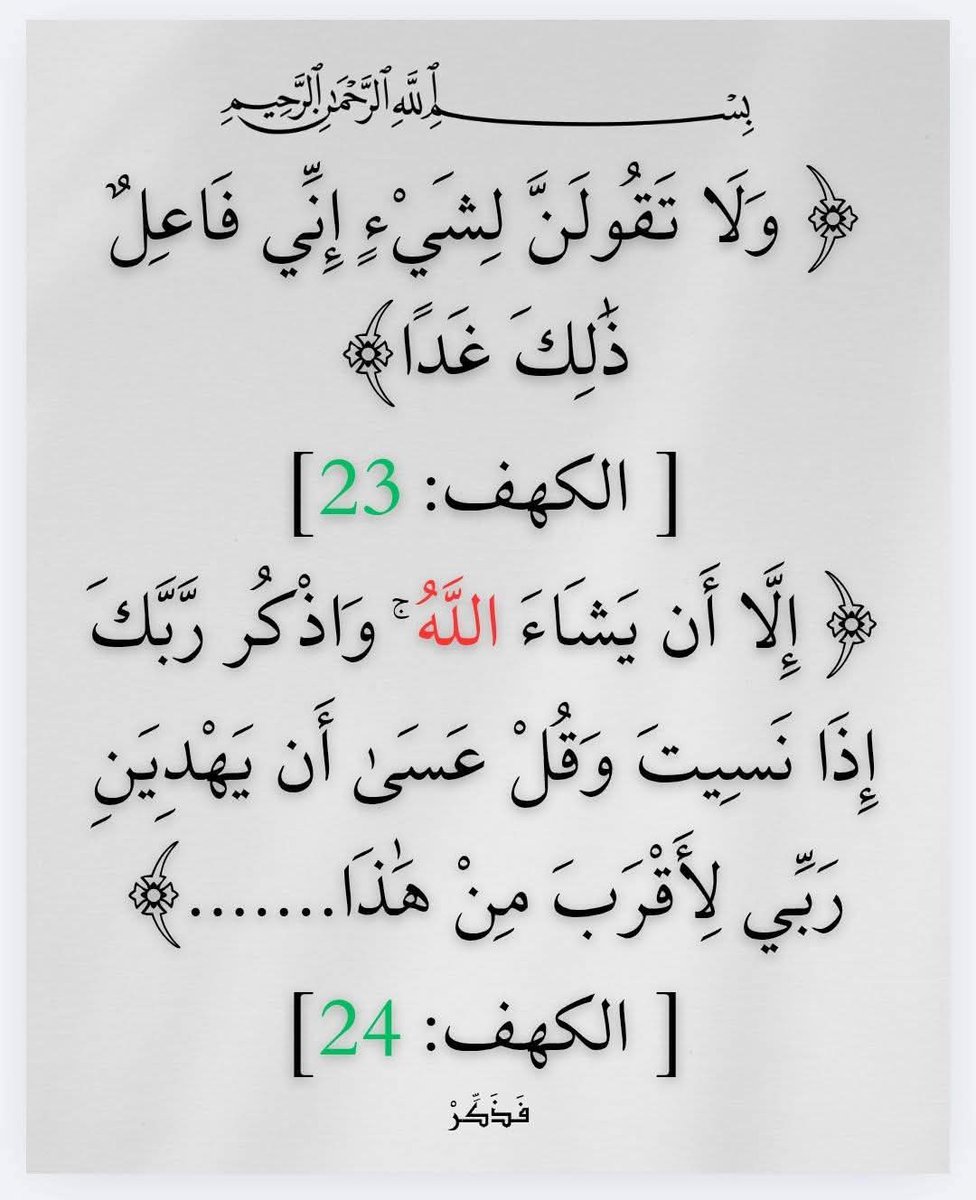 بِسْمِ اللَّهِ الرَّحْمَٰنِ الرَّحِيمِ
﴿ وَلَا تَقُولَنَّ لِشَيْءٍ إِنِّي فَاعِلٌ
ذَٰلِكَ غَدًا﴾
[ الكهف: 23]
﴿ إِلَّا أَن يَشَاءَ اللَّهُ ۚ وَاذْكُر رَّبَّكَ
إِذَا نَسِيتَ وَقُلْ عَسَىٰ أَن يَهْدِيَنِ
رَبِّي لِأَقْرَبَ مِنْ هَٰذَا.......﴾
[ الكهف: 24]
فَذَكِّرْ